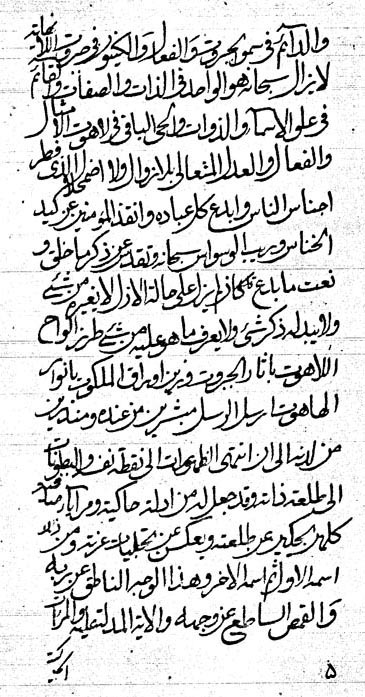 والدائم في سمو الجبروت والفعال والكينون في جبروت اللانهاية
لا يزال سبحانه هو الواحد في الذات والصفات والقائم
في علو الاسماء والذوات والحي الباقي في لاهوت الامثال
والفعال والعدل المتعالي بلا زوال ولا اضمحلال الذي فطر
اجناس الناس وابلغ كل عباده وانقذ المؤمنين عن كيد
الخناس وريب الوسواس سبحانه وتقدس عن ذكر ما خلق و
نعت ما ابدع كان لم يزل على حالة الازل لا يغيره من شيء
ولا يبدله ذكر شيء ولا يعرف ما هو عليه من شيء طرز الواح
اللاهوت باثار الجبروت وزين اوراق الملكوت بانوار
الهاهوت ارسل الرسل مبشرين من عنده ومنذرين
من لدنه الى ان انتهى الظهورات الى نقطة نفسه والبطونات
الى طلعة ذاته وقد جعل له من ادلة حاكية ومرايا
كلهن يحكين عن طلعته ويعكسن عن تجليات عزته ومن
اسمه الاول ثم اسمه الاخر وهذا الوجه الناطق عن ربه
والقمص الساطع عن وجهه والاية المدلة عليه والمرات
الحاكية
۵